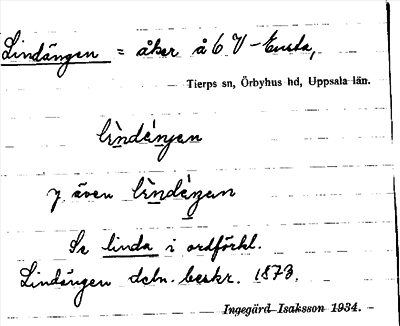 Lindängen = åker å 6 V-Ensta,
Tierps sn, Örbyhus hd, Uppsala län.
lìndèŋen
y. även lìndèŋen
Se linda i ordförkl.
Lindängen dcln. beskr. 1873.
Ingegärd Isaksson 1934.